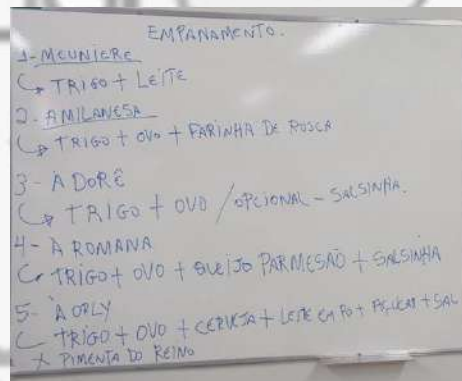 EMPANAMENTO.
1- MEUNIERE
TRIGO + LEITE
2. AMILANESA
TRIGO + OVO + FARINHA DE ROSCA
3 - À DORÊ
TRIGO + OVO / OPCIONAL - SALSINHA.
4- À ROMANA
TRIGO + OVO + QUEIJO PARMESÃO + SALSINHA
5- À ORLY
TRIGO + OVO + CERVEJA + LEITE EM PÓ + AÇUCAR + SAL
+ PIMENTA DO REINO